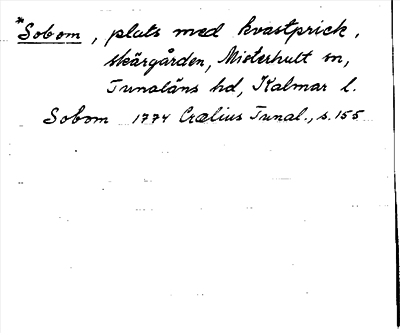 *Sobom, plats med kvastprick,
skärgården, Misterhult sn,
Tunaläns hd, Kalmar l.
Sobom 1774 Crælius Tunal., s. 155